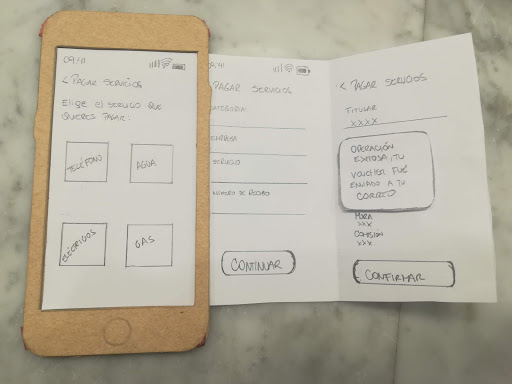 09:41
< PAGAR SERVICIOS
Elige el servicio que
quieres pagar:
TELÉFONO
AGUA
GAS
:41
PAGAR SERVICIOS
CATEGORIA:
EMPRESA
SERVICIO
CONTINUAR
< PAGAR SERVICIOS
TITULAR
XXXX
OPERACIÓN
EXITOSA, TU
VOUCHER FUÉ
ENVIADO A TU
CORREO
XXX
COMISION
XXX
CONFIRMAR